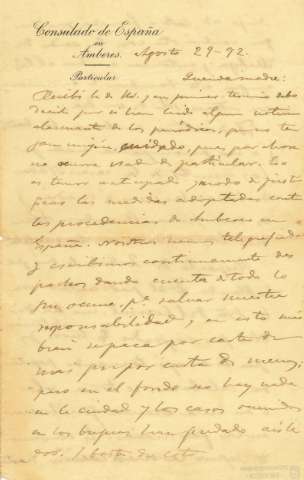 Consulado de España
en
Amberes.
Agosto 29-92.
Particular
Querida madre:
Recibí la de Vd. y en primer término debo
decirle que si han leido algun rumor
alarmante de los periódicos, que no ten
gan ningún cuidado, pues por ahora
no ocurre nada de particular. Es
las medidas adoptadas contra
las procedencias de Amberes en
España. Nosotros hemos telegrafiado
y escribimos continuamente des
pachos dando cuenta de todo lo
que ocurre, pª salvar nuestra
responsabilidad, y en esto más
bien se peca por carta de
más que por carta de menos,
pero en el fondo no hay nada
en la ciudad y los casos ocurridos
en los buques han quedado aisla
dos.